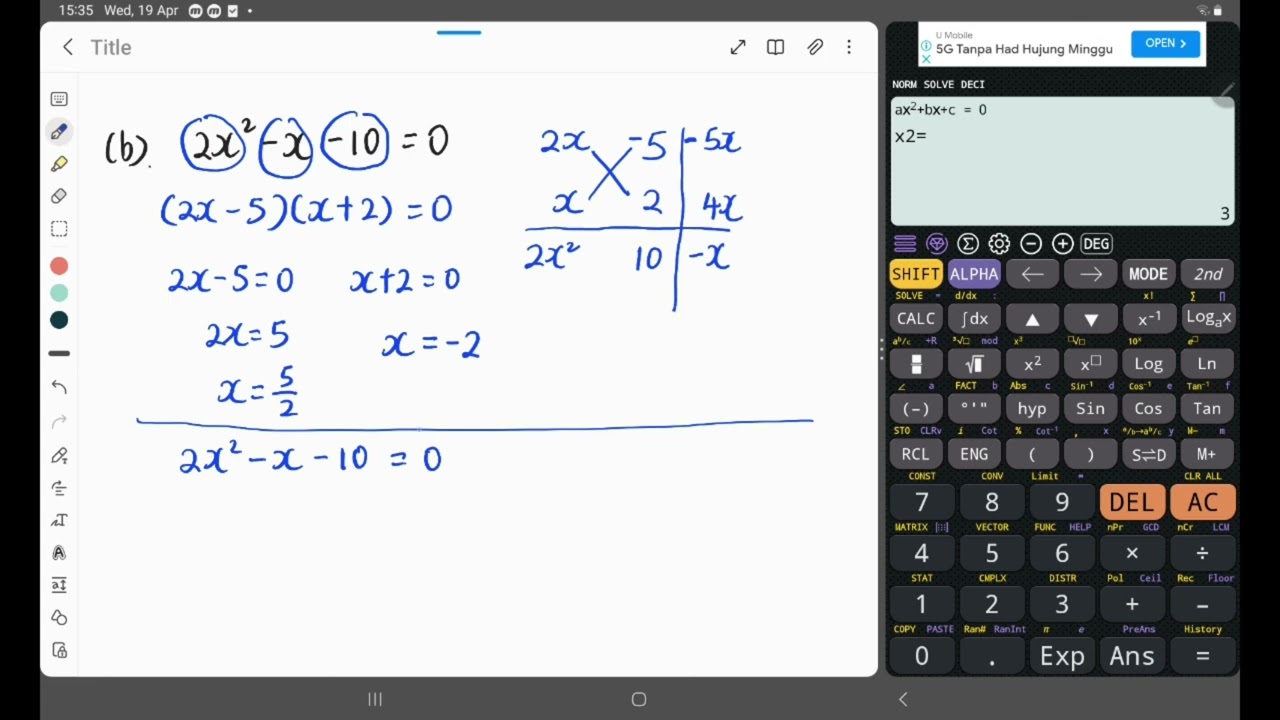 15:35 Wed, 19 Apr
Title
(b). 2x² -x -10 = 0
(2x-5)(x+2) = 0
2x-5=0 x+2=0
2x=5 x=-2
x=5/2
2x²-x-10 = 0
2x -5 -5x
x 2 4x
2x² 10 -x
U Mobile
5G Tanpa Had Hujung Minggu
OPEN >
NORM SOLVE DECI
ax²+bx+c = 0
x2=
3
DEG
SHIFT ALPHA ← → MODE 2nd
SOLVE = d/dx : x! Σ ∏
CALC ∫dx ▲ ▼ x⁻¹ Logₐx
aᵇ/c ÷R ³√□ mod x³ □√□ 10ˣ e□
√□ x² x□ Log Ln
∠ a FACT b Abs c Sin⁻¹ d Cos⁻¹ e Tan⁻¹ f
(−) °'" hyp Sin Cos Tan
STO CLRv i Cot % Cot⁻¹ , x ᵃ/b↔aᵇ/c y M- m
RCL ENG ( ) S⇌D M+
CONST CONV Limit ∞ CLR ALL
7 8 9 DEL AC
MATRIX VECTOR FUNC HELP nPr GCD nCr LCM
4 5 6 × ÷
STAT CMPLX DISTR Pol Ceil Rec Floor
1 2 3 + −
COPY PASTE Ran# RanInt π e PreAns History
0 . Exp Ans =